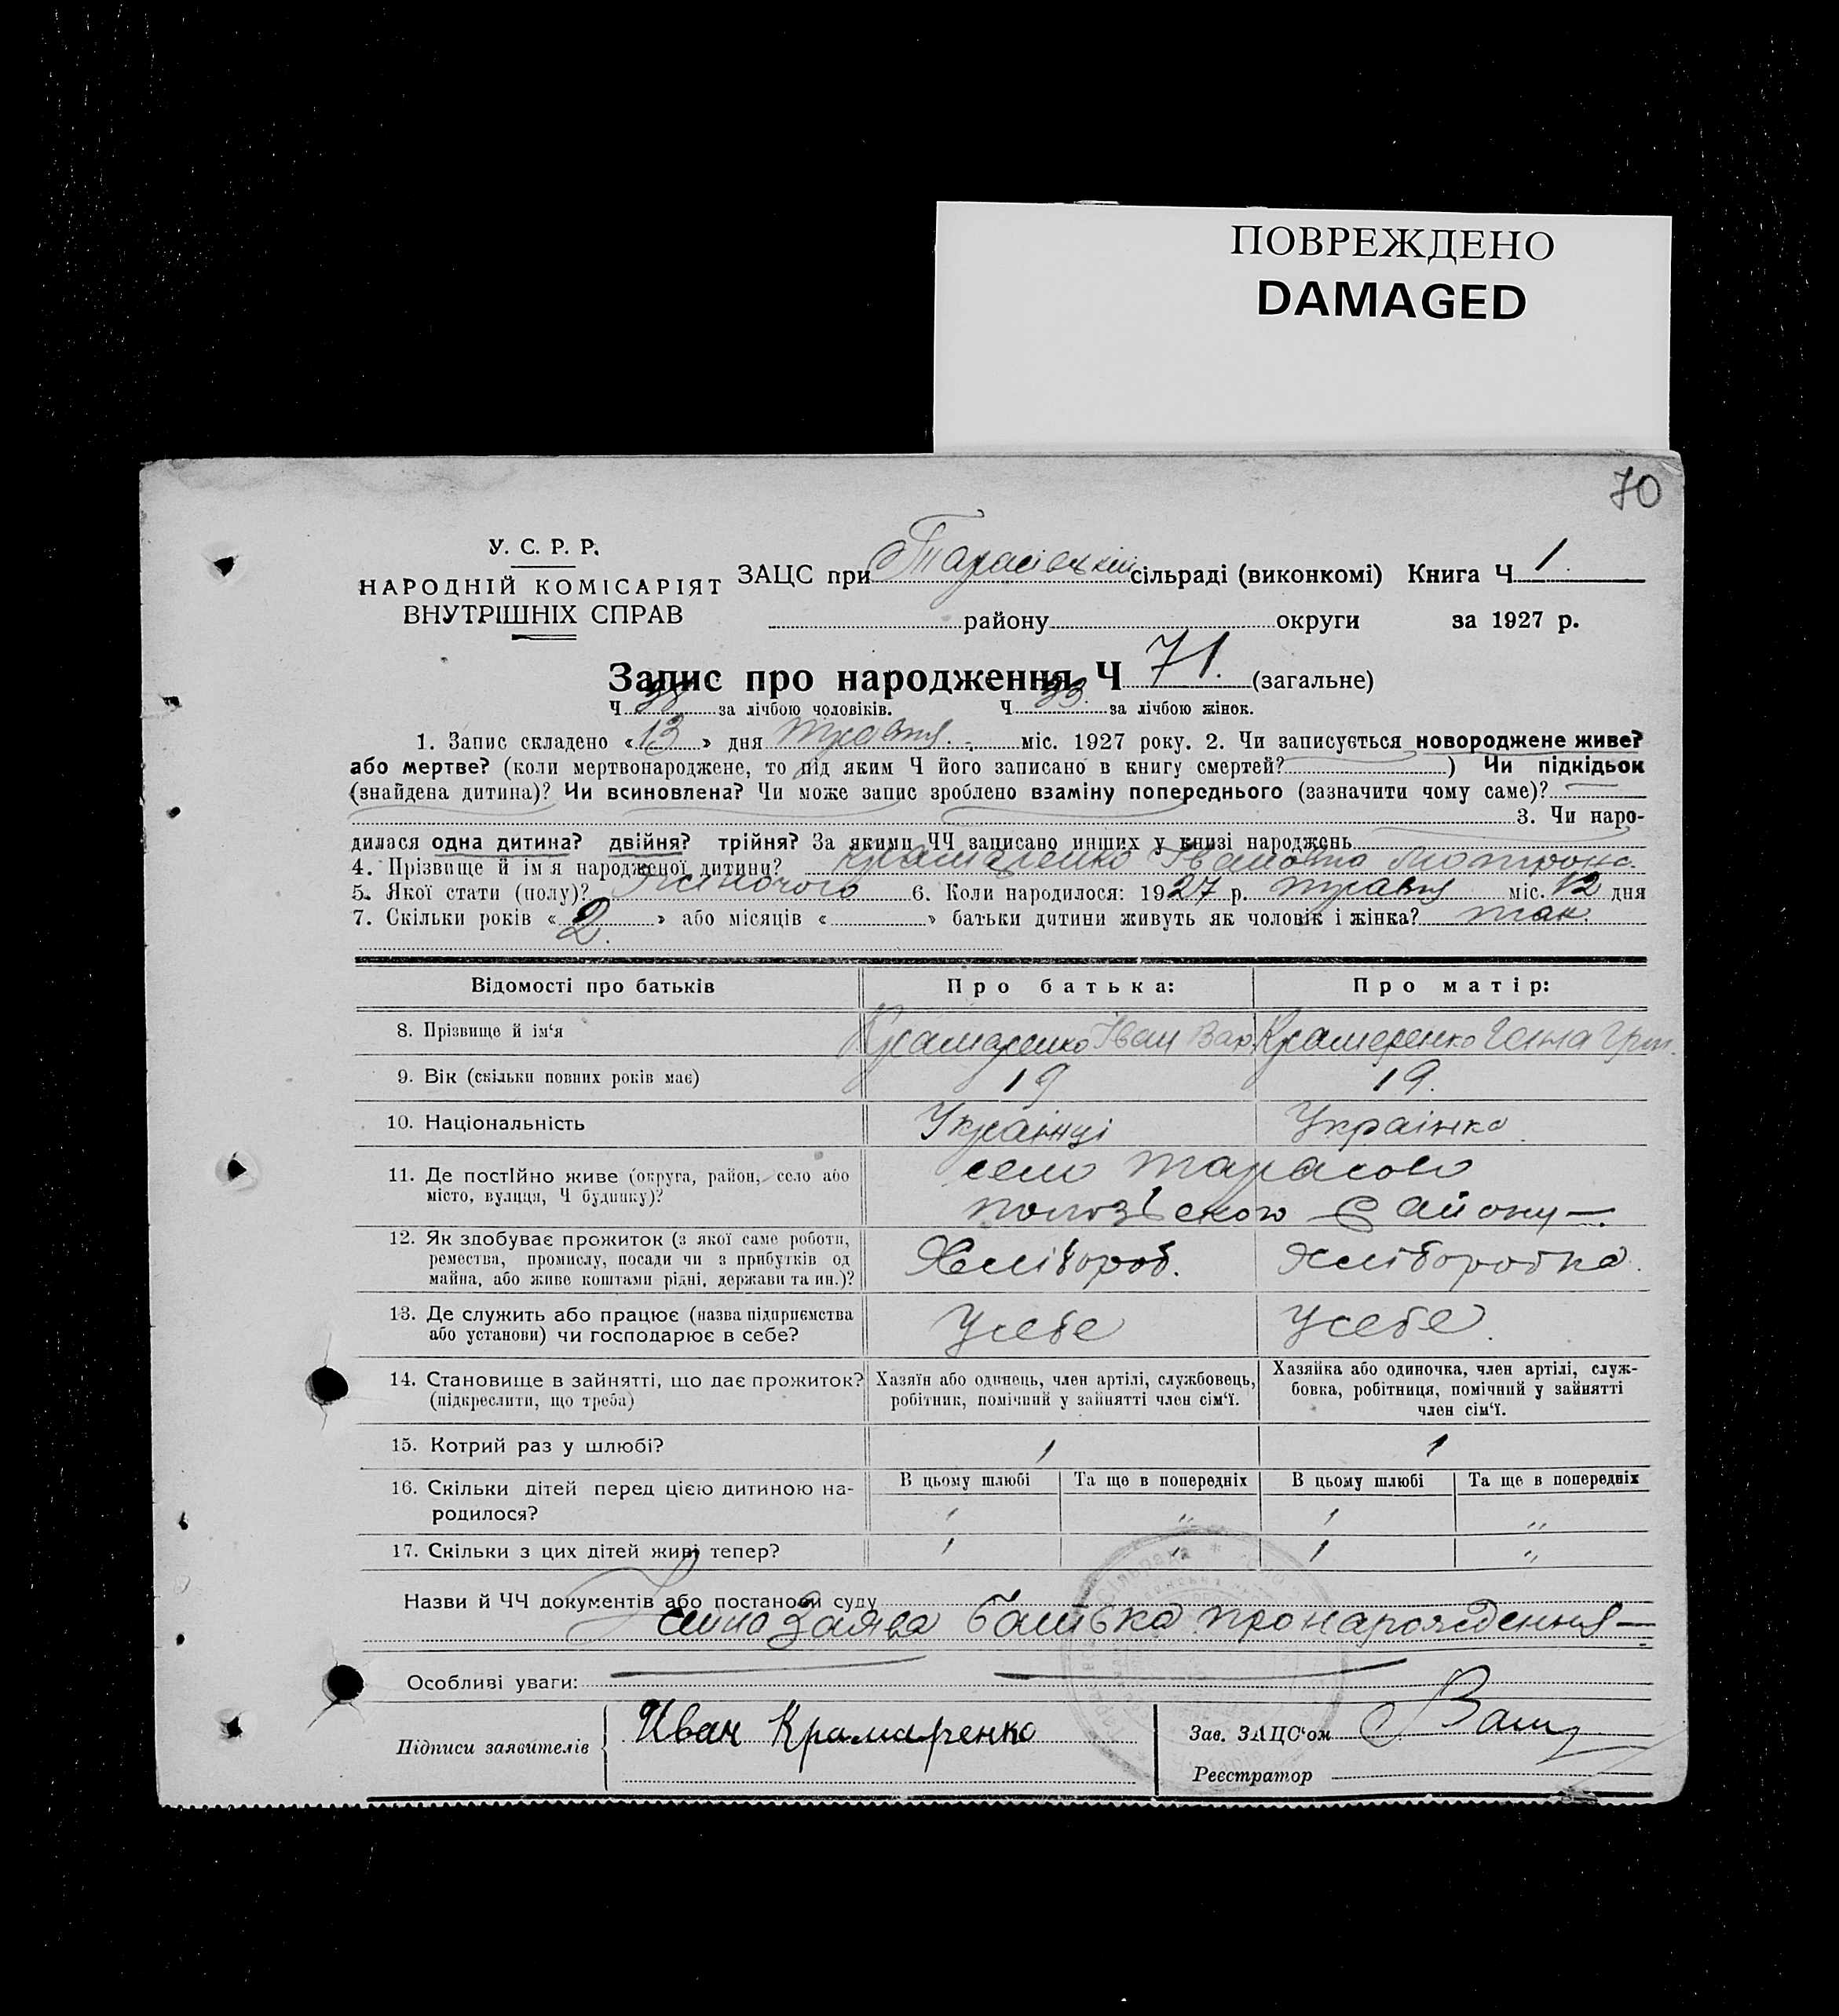 ПОВРЕЖДЕНО
DAMAGED
70
У. С. Р. Р.
НАРОДНІЙ КОМІСАРІЯТ
ВНУТРІШНІХ СПРАВ
ЗАЦС при Тарасівській сільраді (виконкомі) Книга Ч 1.
району округи за 1927 р.
Запис про народження Ч 71. (загальне)
Ч 38 за лічбою чоловіків. Ч 33. за лічбою жінок.
1. Запис складено «13» дня травня. міс. 1927 року. 2. Чи записується новороджене живе?
або мертве? (коли мертвонароджене, то під яким Ч його записано в книгу смертей? ) Чи підкідьок
(знайдена дитина)? Чи всиновлена? Чи може запис зроблено взаміну попереднього (зазначити чому саме)?
3. Чи наро-
дилася одна дитина? двійня? трійня? За якими ЧЧ записано инших у книзі народжень
4. Прізвище й ім'я народженої дитини? Крамаренко Івановна Мотрона.
5. Якої стати (полу)? Жіночого 6. Коли народилося: 1927 р. травня міс. 12 дня
7. Скільки років «2.» або місяців « » батьки дитини живуть як чоловік і жінка? так.
Відомості про батьків Про батька: Про матір:
8. Прізвище й ім'я Крамаренко Іван Вар. Крамеренко Ганна Гри.
9. Вік (скільки повних років має) 19 19.
10. Національність Українці Українка
11. Де постійно живе (округа, район, село або
місто, вулиця, Ч будинку)?
село Тарасово
пологівського Району —.
12. Як здобуває прожиток (з якої саме роботи,
ремества, промислу, посади чи з прибутків од
майна, або живе коштами рідні, держави та ин.)?
Хлібороб. Хліборобка.
13. Де служить або працює (назва підприємства
або установи) чи господарює в себе?
Усебе Усебе.
14. Становище в зайнятті, що дає прожиток?
(підкреслити, що треба)
Хазяїн або одинець, член артілі, службовець,
робітник, помічний у зайнятті член сім'ї.
Хазяйка або одиночка, член артілі, служ-
бовка, робітниця, помічний у зайнятті
член сім'ї.
15. Котрий раз у шлюбі? 1 1
16. Скільки дітей перед цією дитиною на-
родилося?
В цьому шлюбі Та ще в попередніх В цьому шлюбі Та ще в попередніх
1 " 1 "
17. Скільки з цих дітей живі тепер? 1 " 1 "
Назви й ЧЧ документів або постанови суду
заява батька про народження —
Особливі уваги:
Підписи заявителів Иван Крамаренко
Зав. ЗАЦС'ом
Реєстратор